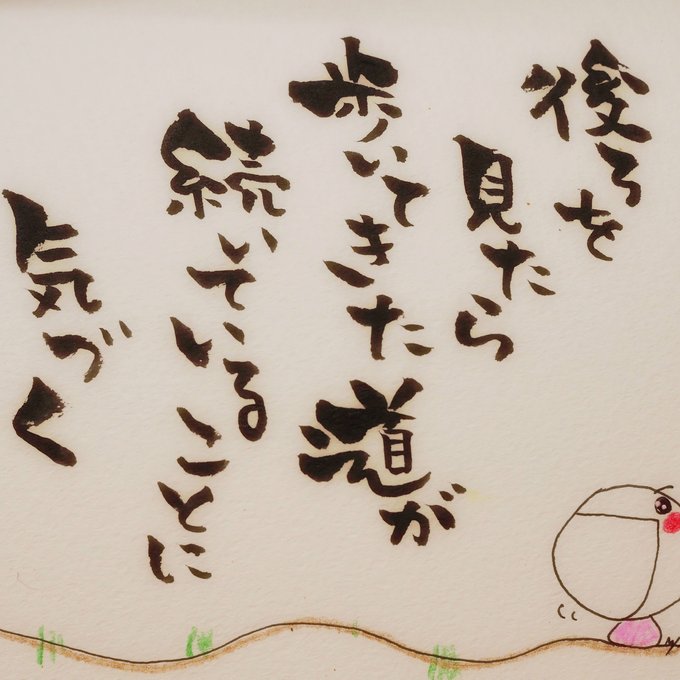 後ろを
見たら
歩いてきた道が
続いていることに
気づく